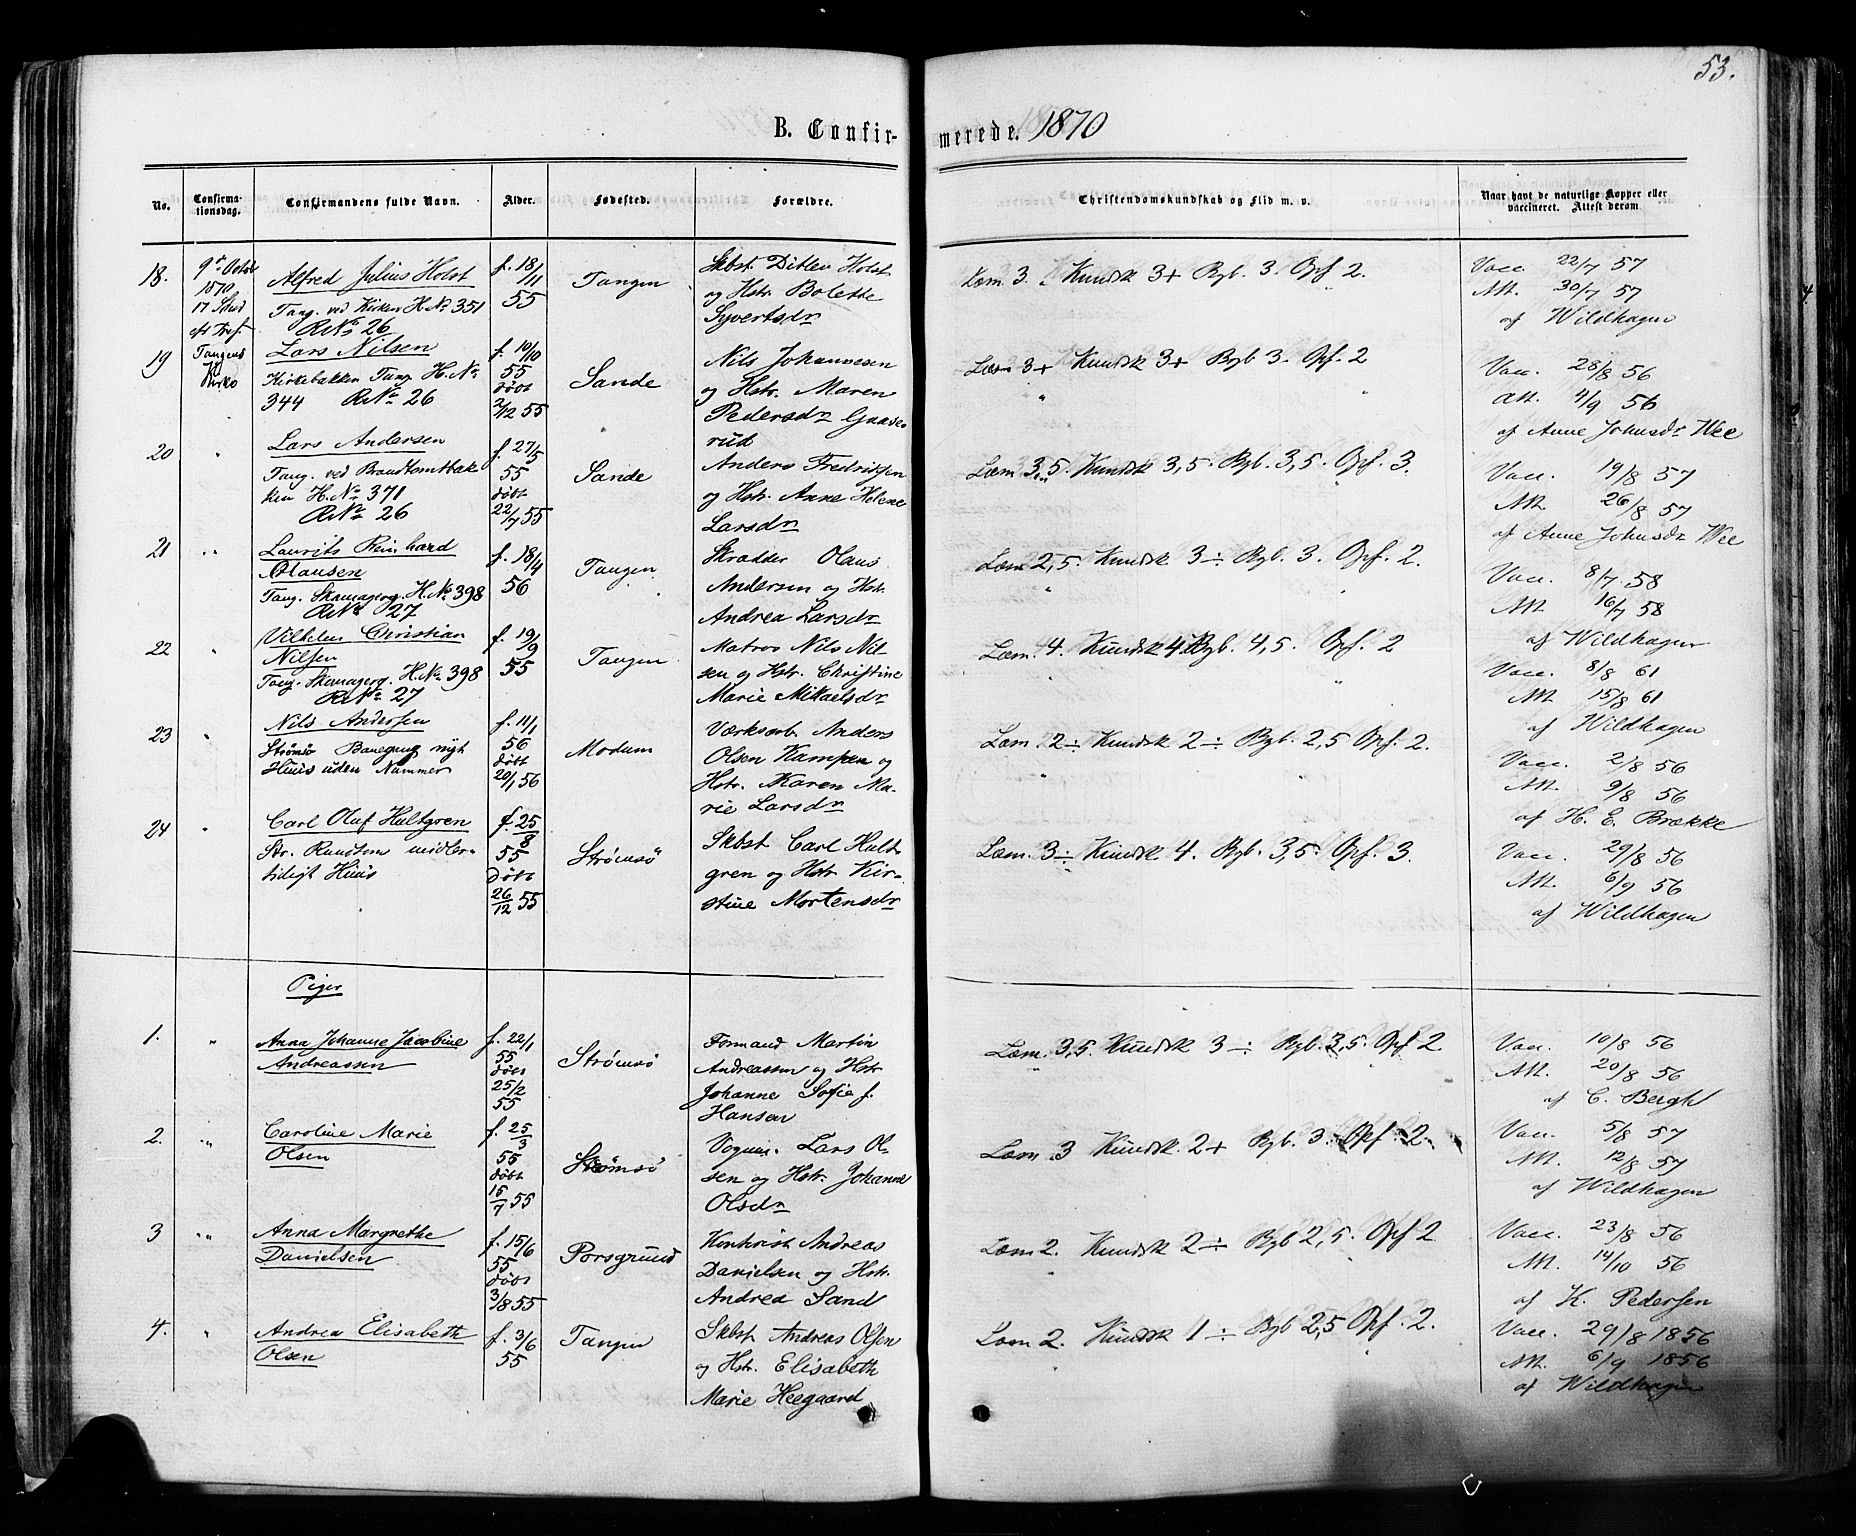 53.
B. Confirmerede. 1870
No.
Confirmationsdag.
Confirmandens fulde Navn.
Alder.
Fødested.
Forældre.
Christendomskundskab og Flid m. v.
Naar havt de naturlige Kopper eller vaccineret. Attest derom
18.
1870
Alfred Julius Holst
Tang. ved Kirken H. No 351
RNo 26
f. 18/11
55
Tangen
Skbst. Ditlev Holst
og Hstr. Bolette
Syvertsdr
Læm. 3. Kundsk 3+ Rgb. 3. Opf. 2.
Vacc 22/7 57
Att. 30/7 57
af Wildhagen
19
Tangens
Kirke
Lars Nilsen
Kirkebakken Tang H. No
344 RNo 26
f. 10/10
55
døbt
2/12 55
Sande
Nils Johannesen
og Hstr. Maren
Pedersdr Gaase
rud
Læm 3+ Kundsk 3+ Rgb 3. Opf. 2
Vacc. 28/8 56
Att. 4/9 56
af Anne Johnsdr Wee
20
Lars Andersen
Tang. ved Brandtomtbak
ken H. No 371
RNo 26
f. 27/5
55
døbt
22/7 55
Sande
Anders Fredriksen
og Hstr. Anne Helene
Larsdr
Læm. 3,5. Kundsk 3,5. Rgb. 3,5. Opf. 3.
Vacc. 19/8 57
Att. 26/8 57
af Anne Johnsdr Wee
21
Laurits Reinhard
Olausen
Tang. Skomagerg. H. No 398
RNo 27
f. 18/4
56
Tangen
Skradder Olaus
Andersen og Hstr.
Andrea Larsdr
Læm 2,5. Kundsk 3 ÷ Rgb. 3. Opf. 2.
Vacc. 8/7 58
Att 16/7 58
af Wildhagen
22
Vilhelm Christian
Nilsen
Tang. Skomagerg. H. No 398
RNo 27
f. 19/9
55
Tangen
Matros Nils Nil
sen og Hstr. Christine
Marie Mikaelsdr
Læm. 4. Kundsk 4. Rgb. 4,5. Opf. 2
Vacc. 8/8 61
Att. 15/8 61
af Wildhagen
23
Nils Andersen
Strømsø Banegang nyt
Huus uden Nummer
f. 11/1
56
døbt
20/1 56
Modum
Værksarb. Anders
Olsen Kampen og
Hstr. Karen Ma-
rie Larsdr
Læm. 2 ÷ Kundsk 2 ÷ Rgb. 2,5 Opf. 2.
Vacc. 2/8 56
Att. 9/8 56
af H. E. Brække
24
Carl Oluf Hultgren
Str. Rundtom midler-
tidigt Huus
f. 25/8
55
døbt
26/12 55
Strømsø
Skbst Carl Hult-
gren og Hstr. Kir-
stine Mortensdr
Læm. 3 ÷ Kundsk 4. Rgb. 3,5. Opf. 3.
Vacc. 29/8 56
Att. 6/9 56
af Wildhagen
Piger
1.
Anna Johanne Jacobine
Andreassen
f. 22/1
55
døbt
25/2
55
Strømsø
Formand Martin
Andreassen og Hstr
Johanne Sofie f.
Hansen
Læm. 3,5. Kundsk 3 ÷ Rgb. 3,5. Opf 2.
Vacc. 10/8 56
Att. 20/8 56
af C. Bergh
2.
Caroline Marie
Olsen
f. 25/3
55
døbt
15/7 55
Strømsø
Vognm. Lars Ol-
sen og Hstr. Johanne
Olsdr
Læm. 3 Kundsk 2+ Rgb. 3. Opf. 2.
Vacc. 5/8 57
Att. 12/8 57
af Wildhagen
3
Anna Margrethe
Danielsen
f. 15/6
55
døbt
3/8 55
Porsgrund
Andreas
Danielsen og Hstr.
Andrea Sand
Læm 2. Kundsk 2 ÷ Rgb 2,5. Opf 2
Vacc. 23/8 56
Att. 14/10 56
af K. Pedersen
4.
Andrea Elisabeth
Olsen
f. 3/6
55
Tangen
Skbst Andreas Olsen
og Hstr. Elisabeth
Marie Heegaard
Læm 2. Kundsk 1 ÷ Rgb 2,5 Opf. 2.
Vacc. 29/8 1856
Att. 6/9 1856
af Wildhagen